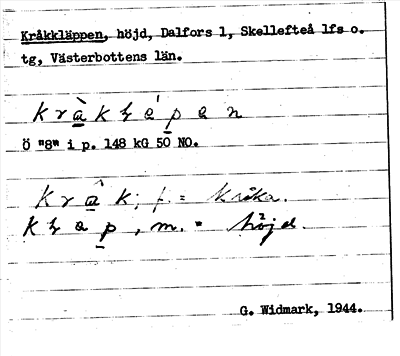 Kråkkläppen, höjd, Dalfors 1, Skellefteå lfs o.
tg, Västerbottens län.
krà̠kłépen
ö "8" i p. 148 kG 50 NO.
krâ̠k; f. = kråka.
kłep̠, m. = höjd.
G. Widmark, 1944.